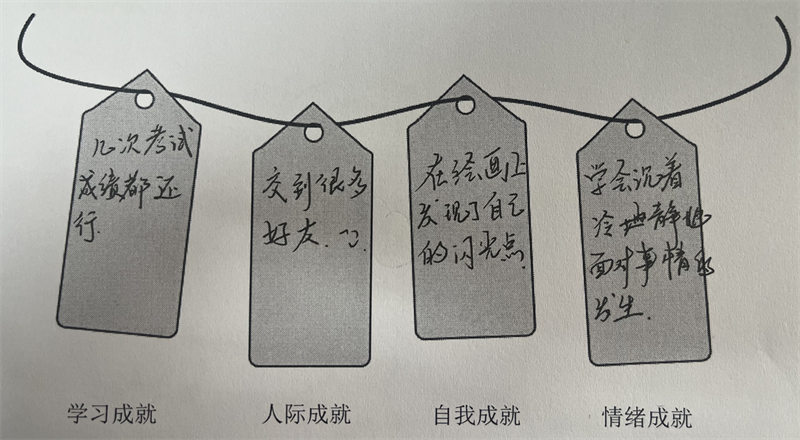 几次考试
成绩都还
行.
交到很多
好友.
在绘画上
发现了自己
的闪光点.
学会沉着
冷地静地
面对事情的
发生.
学习成就
人际成就
自我成就
情绪成就